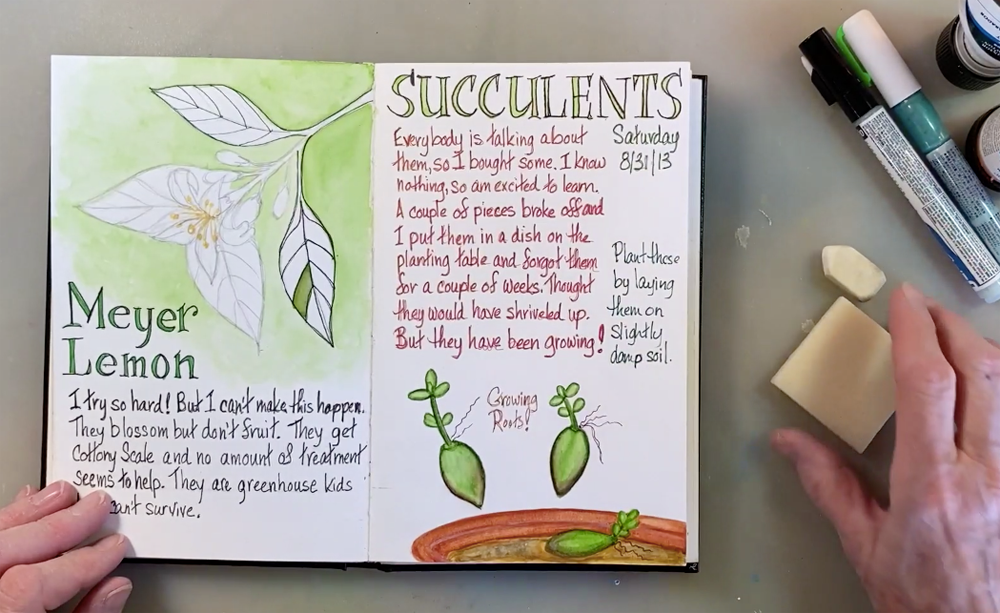 Meyer
Lemon
I try so hard! But I can't make this happen.
They blossom but don't fruit. They get
Cottony Scale and no amount of treatment
seems to help. They are greenhouse kids
can't survive.
SUCCULENTS
Everybody is talking about
them, so I bought some. I know
nothing, so am excited to learn.
A couple of pieces broke off and
I put them in a dish on the
planting table and forgot them
for a couple of weeks. Thought
they would have shriveled up.
But they have been growing!
Saturday
8/31/13
Plant those
by laying
them on
slightly
damp soil.
Growing
Roots!